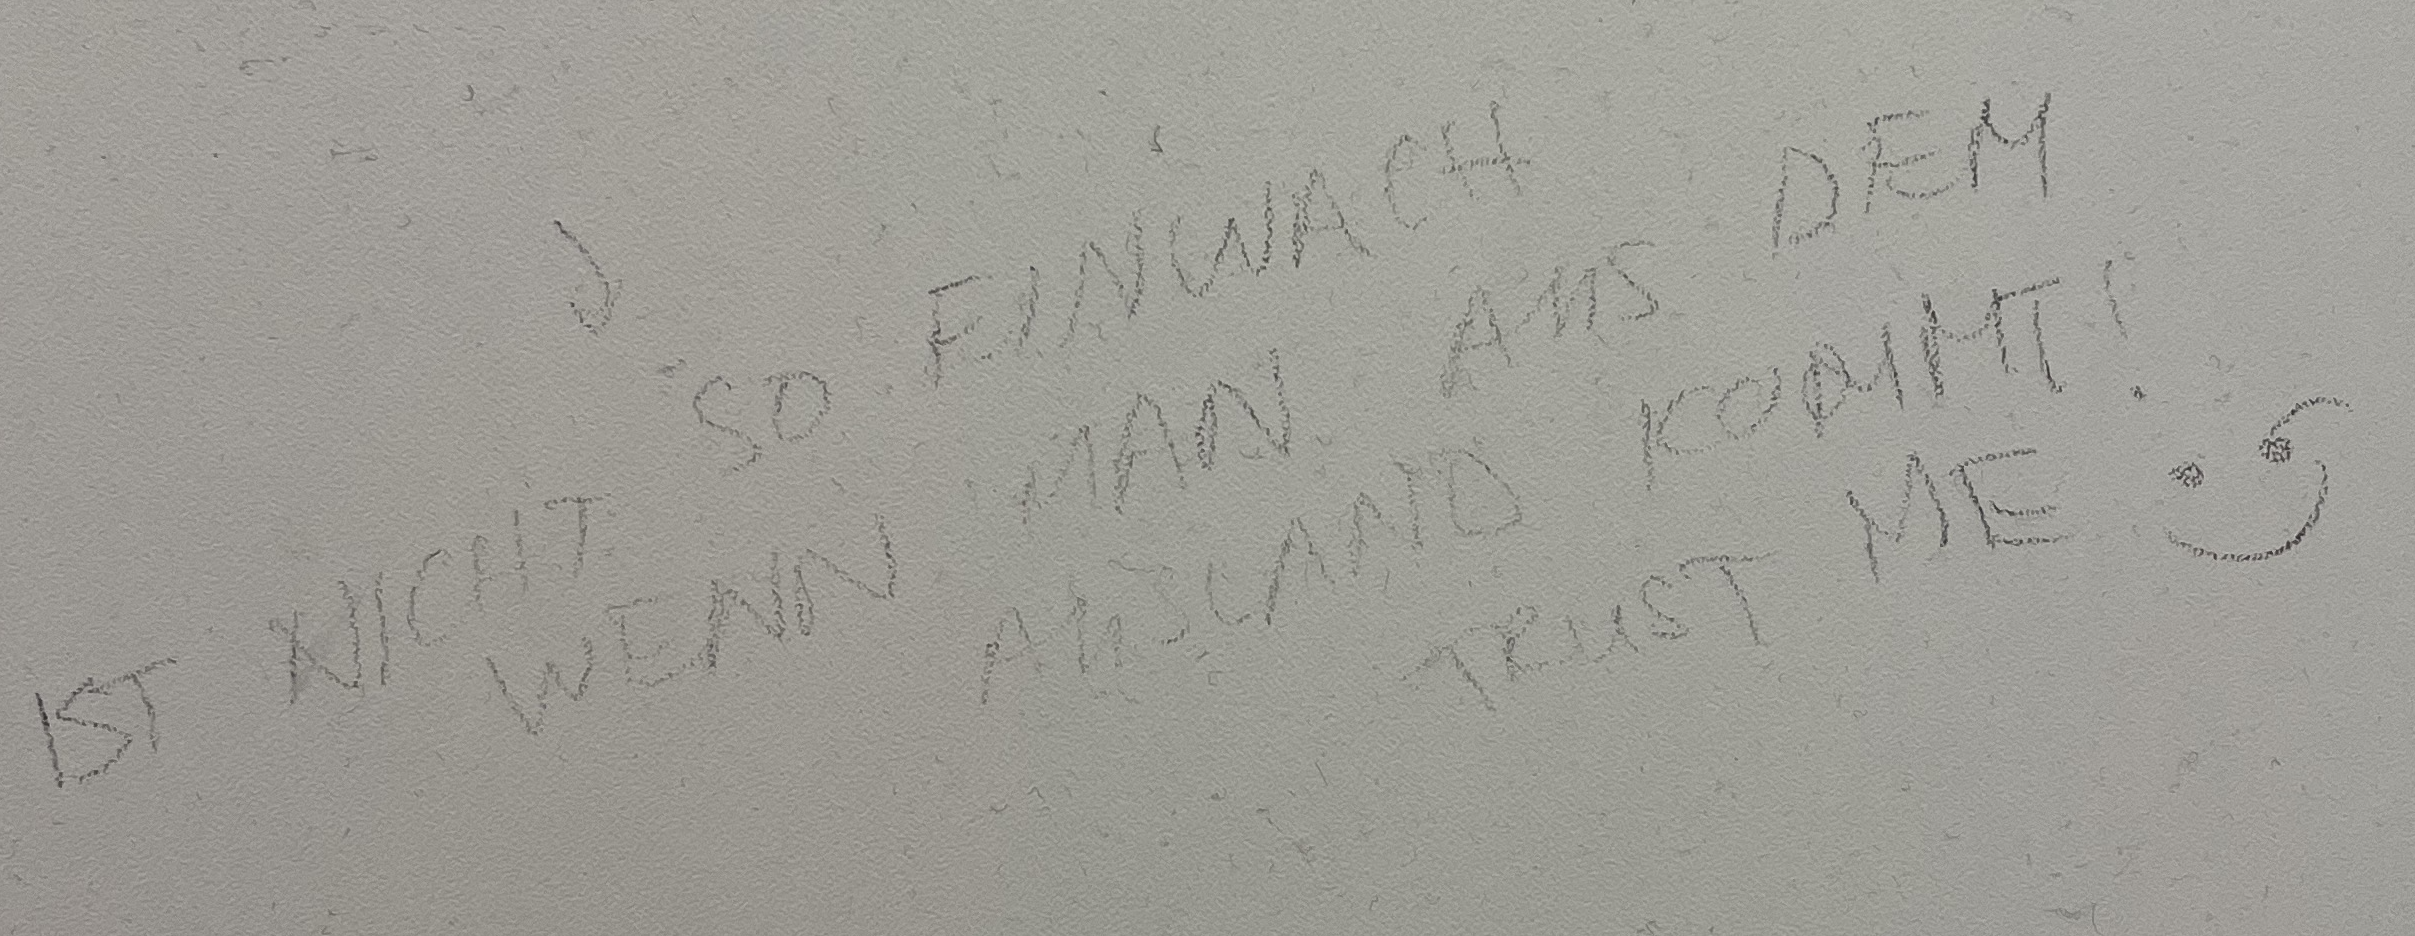 IST NICHT SO EINWACH
WENN MAN AUS DEM
AUSLAND KOMMT!
TRUST ME